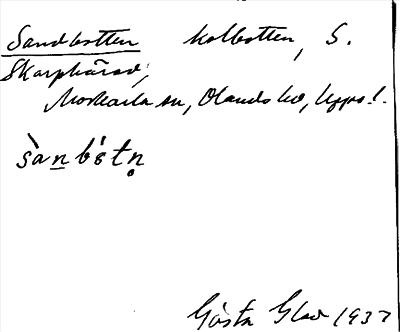 Sandbotten kolbotten, S.
Skarphärad,
Morkarla sn, Olands hd, Upps. l.
sànbótn̥
Gösta 1937